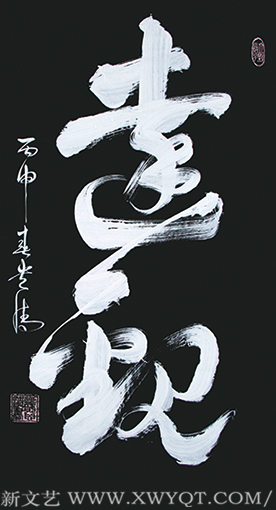 達观
丙申春
新文艺 WWW.XWYQT.COM/